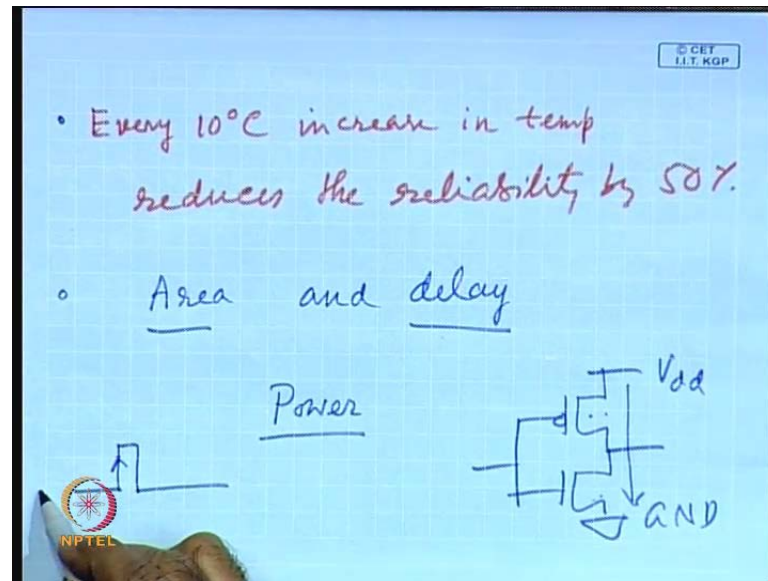 © CET
I.I.T. KGP
• Every 10°C increase in temp
reduces the reliability by 50%.
• Area and delay
Power
Vdd
GND
NPTEL